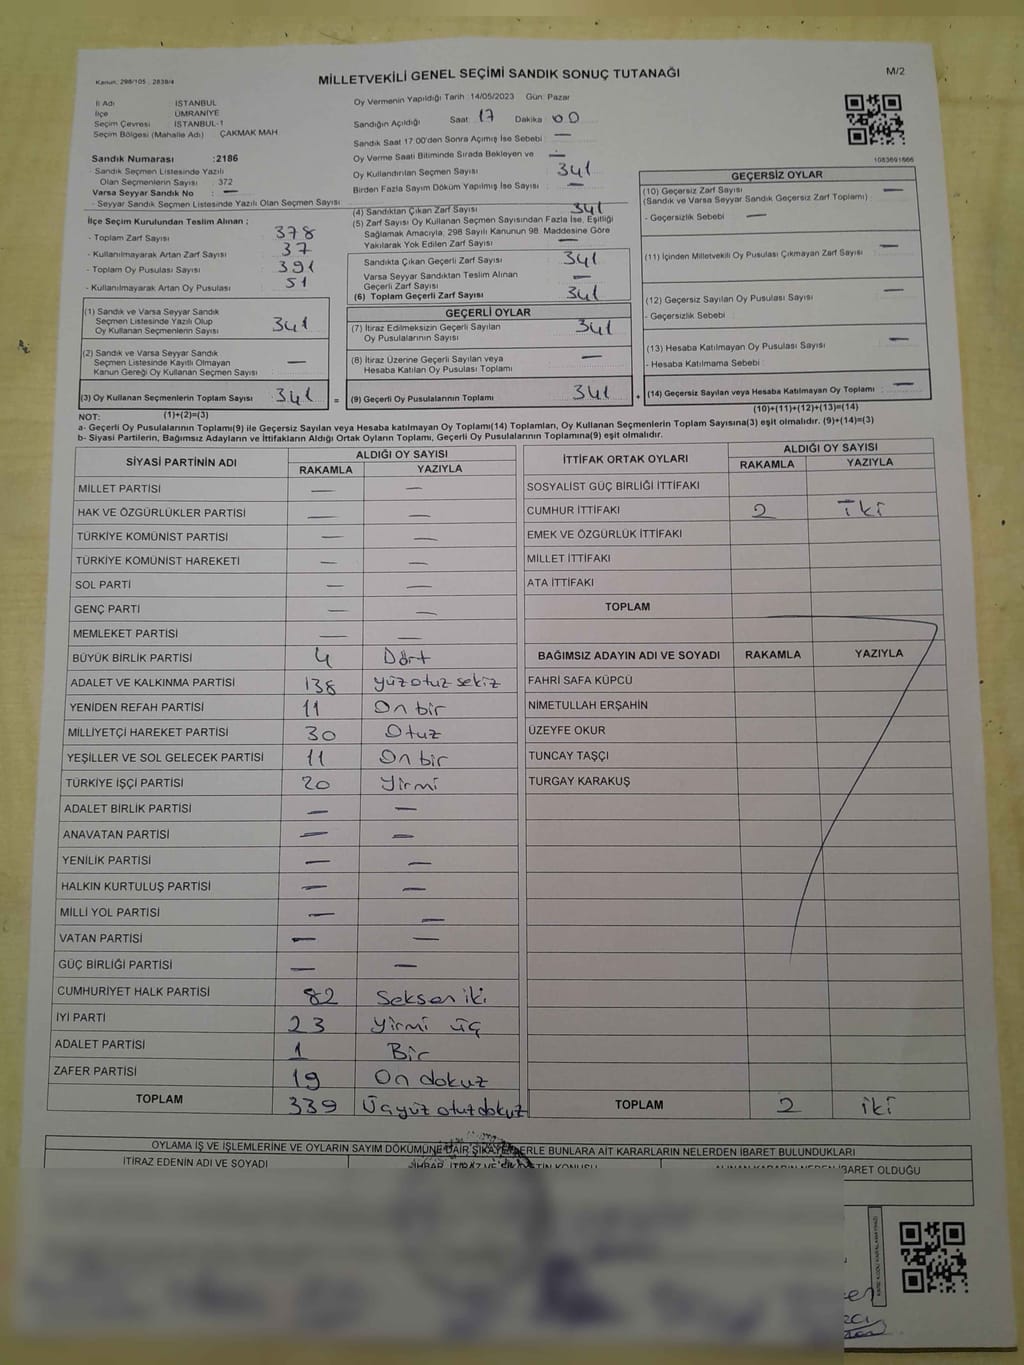 Kanun: 298/105 , 2839/4
MİLLETVEKİLİ GENEL SEÇİMİ SANDIK SONUÇ TUTANAĞI
M/2
İl Adı İSTANBUL
İlçe ÜMRANİYE
Seçim Çevresi İSTANBUL-1
Seçim Bölgesi (Mahalle Adı) ÇAKMAK MAH
Sandık Numarası :2186
- Sandık Seçmen Listesinde Yazılı
Olan Seçmenlerin Sayısı : 372
Varsa Seyyar Sandık No : —
- Seyyar Sandık Seçmen Listesinde Yazılı Olan Seçmen Sayısı
İlçe Seçim Kurulundan Teslim Alınan ;
- Toplam Zarf Sayısı 378
- Kullanılmayarak Artan Zarf Sayısı 37
- Toplam Oy Pusulası Sayısı 391
- Kullanılmayarak Artan Oy Pusulası 51
(1) Sandık ve Varsa Seyyar Sandık
Seçmen Listesinde Yazılı Olup
Oy Kullanan Seçmenlerin Sayısı 341
(2) Sandık ve Varsa Seyyar Sandık
Seçmen Listesinde Kayıtlı Olmayan
Kanun Gereği Oy Kullanan Seçmen Sayısı —
(3) Oy Kullanan Seçmenlerin Toplam Sayısı 341 =
(1)+(2)=(3)
Oy Vermenin Yapıldığı Tarih :14/05/2023 Gün: Pazar
Sandığın Açıldığı Saat 17 Dakika 00
Sandık Saat 17:00'den Sonra Açılmış İse Sebebi : —
Oy Verme Saati Bitiminde Sırada Bekleyen ve —
Oy Kullandırılan Seçmen Sayısı 341
Birden Fazla Sayım Döküm Yapılmış İse Sayısı : —
(4) Sandıktan Çıkan Zarf Sayısı 341
(5) Zarf Sayısı Oy Kullanan Seçmen Sayısından Fazla İse, Eşitliği
Sağlamak Amacıyla, 298 Sayılı Kanunun 98. Maddesine Göre
Yakılarak Yok Edilen Zarf Sayısı —
Sandıkta Çıkan Geçerli Zarf Sayısı 341
Varsa Seyyar Sandıktan Teslim Alınan
Geçerli Zarf Sayısı —
(6) Toplam Geçerli Zarf Sayısı 341
GEÇERLİ OYLAR
(7) İtiraz Edilmeksizin Geçerli Sayılan
Oy Pusulalarının Sayısı 341
(8) İtiraz Üzerine Geçerli Sayılan veya
Hesaba Katılan Oy Pusulası Toplamı —
(9) Geçerli Oy Pusulalarının Toplamı 341 +
1083691666
GEÇERSİZ OYLAR
(10) Geçersiz Zarf Sayısı —
(Sandık ve Varsa Seyyar Sandık Geçersiz Zarf Toplamı)
- Geçersizlik Sebebi : —
(11) İçinden Milletvekili Oy Pusulası Çıkmayan Zarf Sayısı —
(12) Geçersiz Sayılan Oy Pusulası Sayısı —
- Geçersizlik Sebebi
(13) Hesaba Katılmayan Oy Pusulası Sayısı —
- Hesaba Katılmama Sebebi :
(14) Geçersiz Sayılan veya Hesaba Katılmayan Oy Toplamı —
(10)+(11)+(12)+(13)=(14)
NOT:
a- Geçerli Oy Pusulalarının Toplamı(9) ile Geçersiz Sayılan veya Hesaba katılmayan Oy Toplamı(14) Toplamları, Oy Kullanan Seçmenlerin Toplam Sayısına(3) eşit olmalıdır. (9)+(14)=(3)
b- Siyasi Partilerin, Bağımsız Adayların ve İttifakların Aldığı Ortak Oyların Toplamı, Geçerli Oy Pusulalarının Toplamına(9) eşit olmalıdır.
SİYASİ PARTİNİN ADI ALDIĞI OY SAYISI
RAKAMLA YAZIYLA
MİLLET PARTİSİ — —
HAK VE ÖZGÜRLÜKLER PARTİSİ — —
TÜRKİYE KOMÜNİST PARTİSİ — —
TÜRKİYE KOMÜNİST HAREKETİ — —
SOL PARTİ — —
GENÇ PARTİ — —
MEMLEKET PARTİSİ — —
BÜYÜK BİRLİK PARTİSİ 4 Dört
ADALET VE KALKINMA PARTİSİ 138 yüz otuz sekiz
YENİDEN REFAH PARTİSİ 11 On bir
MİLLİYETÇİ HAREKET PARTİSİ 30 Otuz
YEŞİLLER VE SOL GELECEK PARTİSİ 11 On bir
TÜRKİYE İŞÇİ PARTİSİ 20 Yirmi
ADALET BİRLİK PARTİSİ — —
ANAVATAN PARTİSİ — —
YENİLİK PARTİSİ — —
HALKIN KURTULUŞ PARTİSİ — —
MİLLİ YOL PARTİSİ — —
VATAN PARTİSİ — —
GÜÇ BİRLİĞİ PARTİSİ — —
CUMHURİYET HALK PARTİSİ 82 Seksen iki
İYİ PARTİ 23 Yirmi üç
ADALET PARTİSİ 1 Bir
ZAFER PARTİSİ 19 On dokuz
TOPLAM 339 Üçyüz otuz dokuz
İTTİFAK ORTAK OYLARI ALDIĞI OY SAYISI
RAKAMLA YAZIYLA
SOSYALİST GÜÇ BİRLİĞİ İTTİFAKI
CUMHUR İTTİFAKI 2 İki
EMEK VE ÖZGÜRLÜK İTTİFAKI
MİLLET İTTİFAKI
ATA İTTİFAKI
TOPLAM
BAĞIMSIZ ADAYIN ADI VE SOYADI RAKAMLA YAZIYLA
FAHRİ SAFA KÜPCÜ
NİMETULLAH ERŞAHİN
ÜZEYFE OKUR
TUNCAY TAŞÇI
TURGAY KARAKUŞ
TOPLAM 2 iki
OYLAMA İŞ VE İŞLEMLERİNE VE OYLARIN SAYIM DÖKÜMÜNE DAİR ŞİKAYETLERLE BUNLARA AİT KARARLARIN NELERDEN İBARET BULUNDUKLARI
İTİRAZ EDENİN ADI VE SOYADI
İBARET OLDUĞU